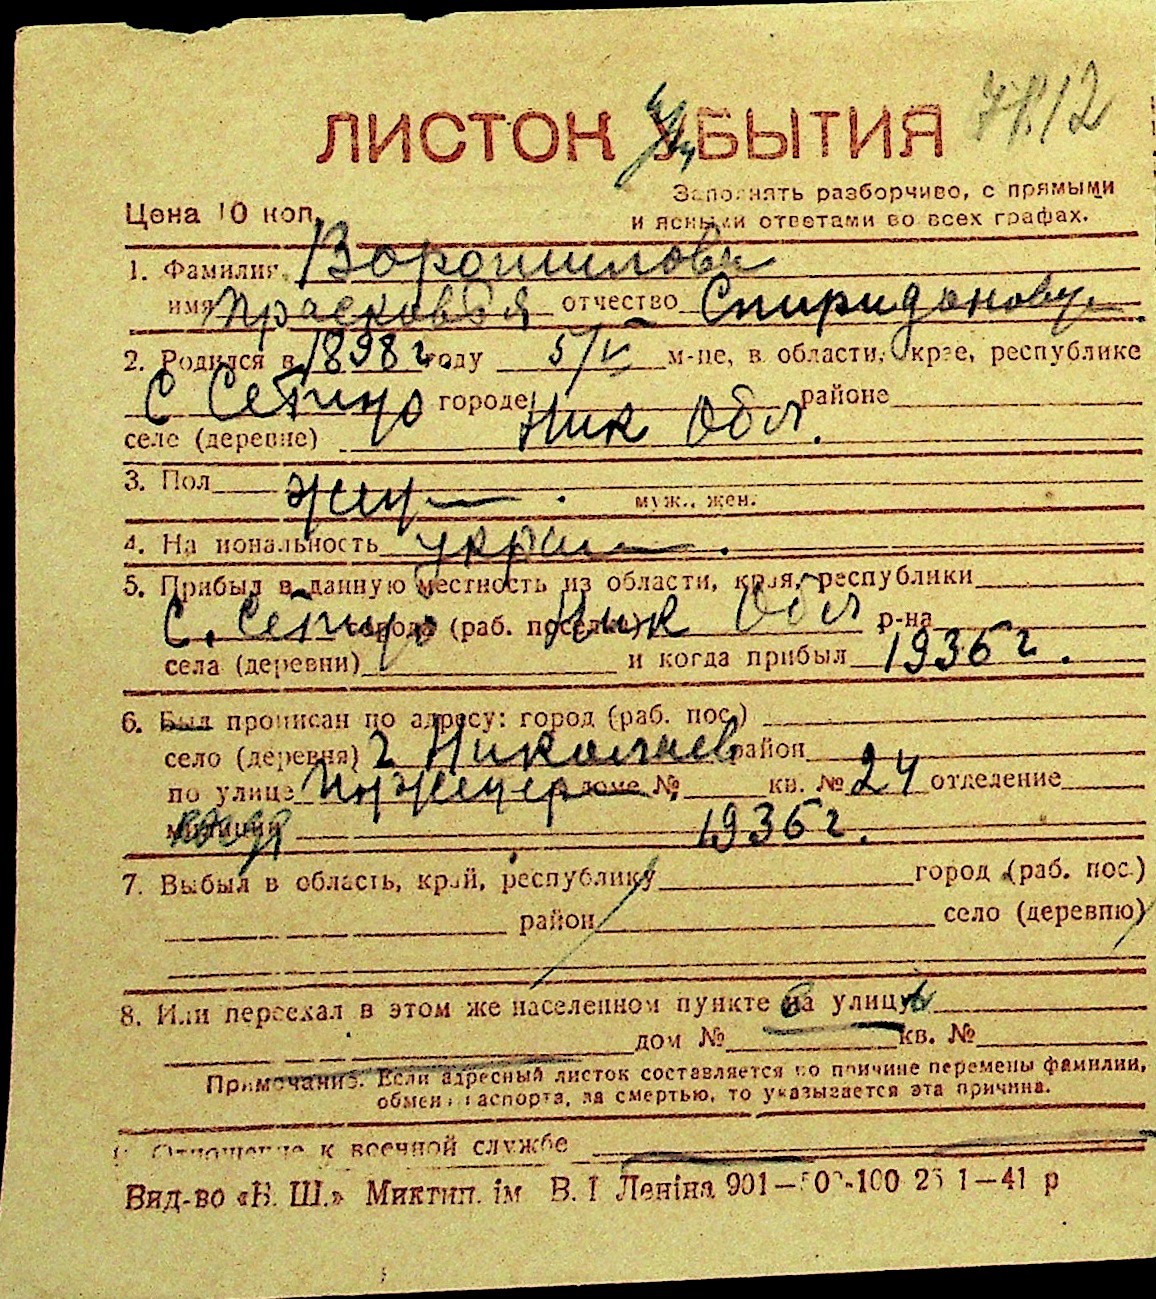 ЛИСТОК УБЫТИЯ
Цена 10 коп.
Заполнять разборчиво, с прямыми
и ясными ответами во всех графах.
1. Фамилия Ворошилова
имя Прасковья отчество Спиридоновн
2. Родился в 1898 г. году 5/V м-це, в области, крае, республике
С городе районе
селе (деревне) Ник Обл.
3. Пол жен .
муж., жен.
4. Национальность укра .
5. Прибыл в данную местность из области, края, республики
С. города (раб. поселка) Ник Обл р-на
села (деревни) и когда прибыл 1936 г.
6. Был прописан по адресу: город (раб. пос.)
село (деревня) г Николаев район
по улице доме № кв. № 24 отделение
милиции 1936 г.
7. Выбыл в область, край, республику город (раб. пос.)
район село (деревню)
8. Или переехал в этом же населенном пункте на улицу
дом № кв. №
Примечание. Если адресный листок составляется по причине перемены фамилии,
обмен паспорта, за смертью, то указывается эта причина.
Отношение к военной службе
Вид-во «Б. Ш.» Миктип. ім В. І Леніна 901— -100 1—41 р